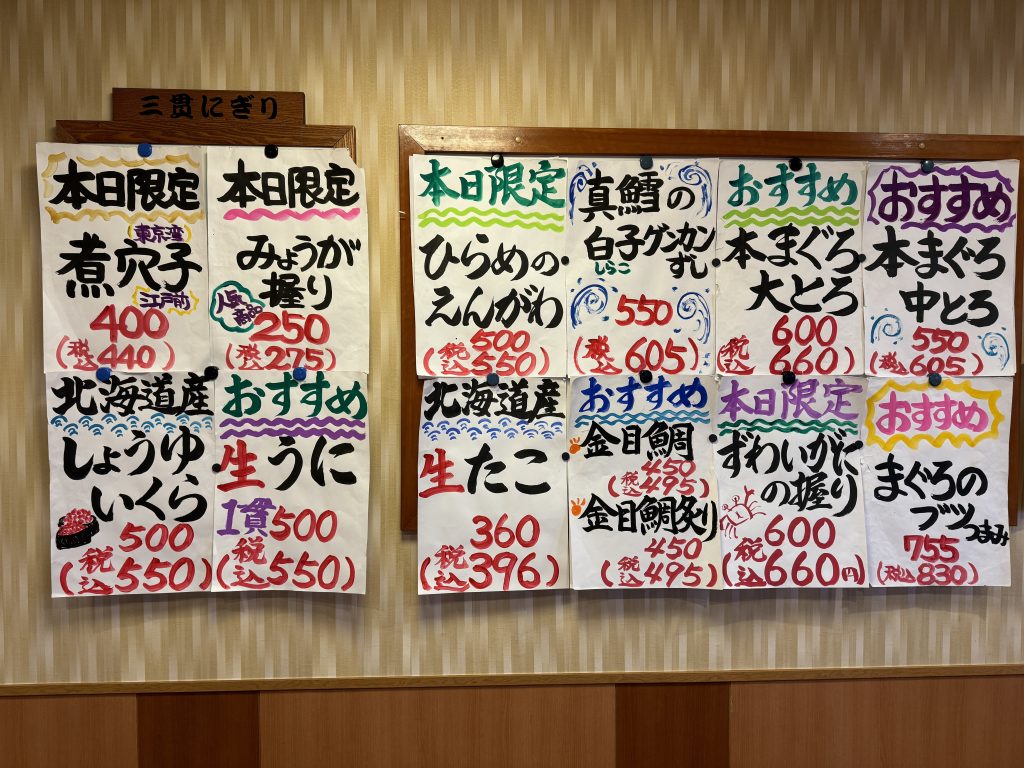 三貫にぎり
本日限定
東京湾
煮穴子
江戸前
400
(税込440)
本日限定
みょうが
握り
250
(税込275)
北海道産
しょうゆ
いくら
500
(税込550)
おすすめ
生うに
1貫500
(税込550)
本日限定
ひらめの
えんがわ
500
(税込550)
真鱈の
白子グンカン
しらこ
ずし
550
(税込605)
おすすめ
本まぐろ
大とろ
600
(税込660)
おすすめ
本まぐろ
中とろ
550
(税込605)
北海道産
生たこ
360
(税込396)
おすすめ
金目鯛
450
(税込495)
金目鯛炙り
450
(税込495)
本日限定
ずわいがに
の握り
600
(税込660円)
おすすめ
まぐろの
ブツ
つまみ
755
(税込830)